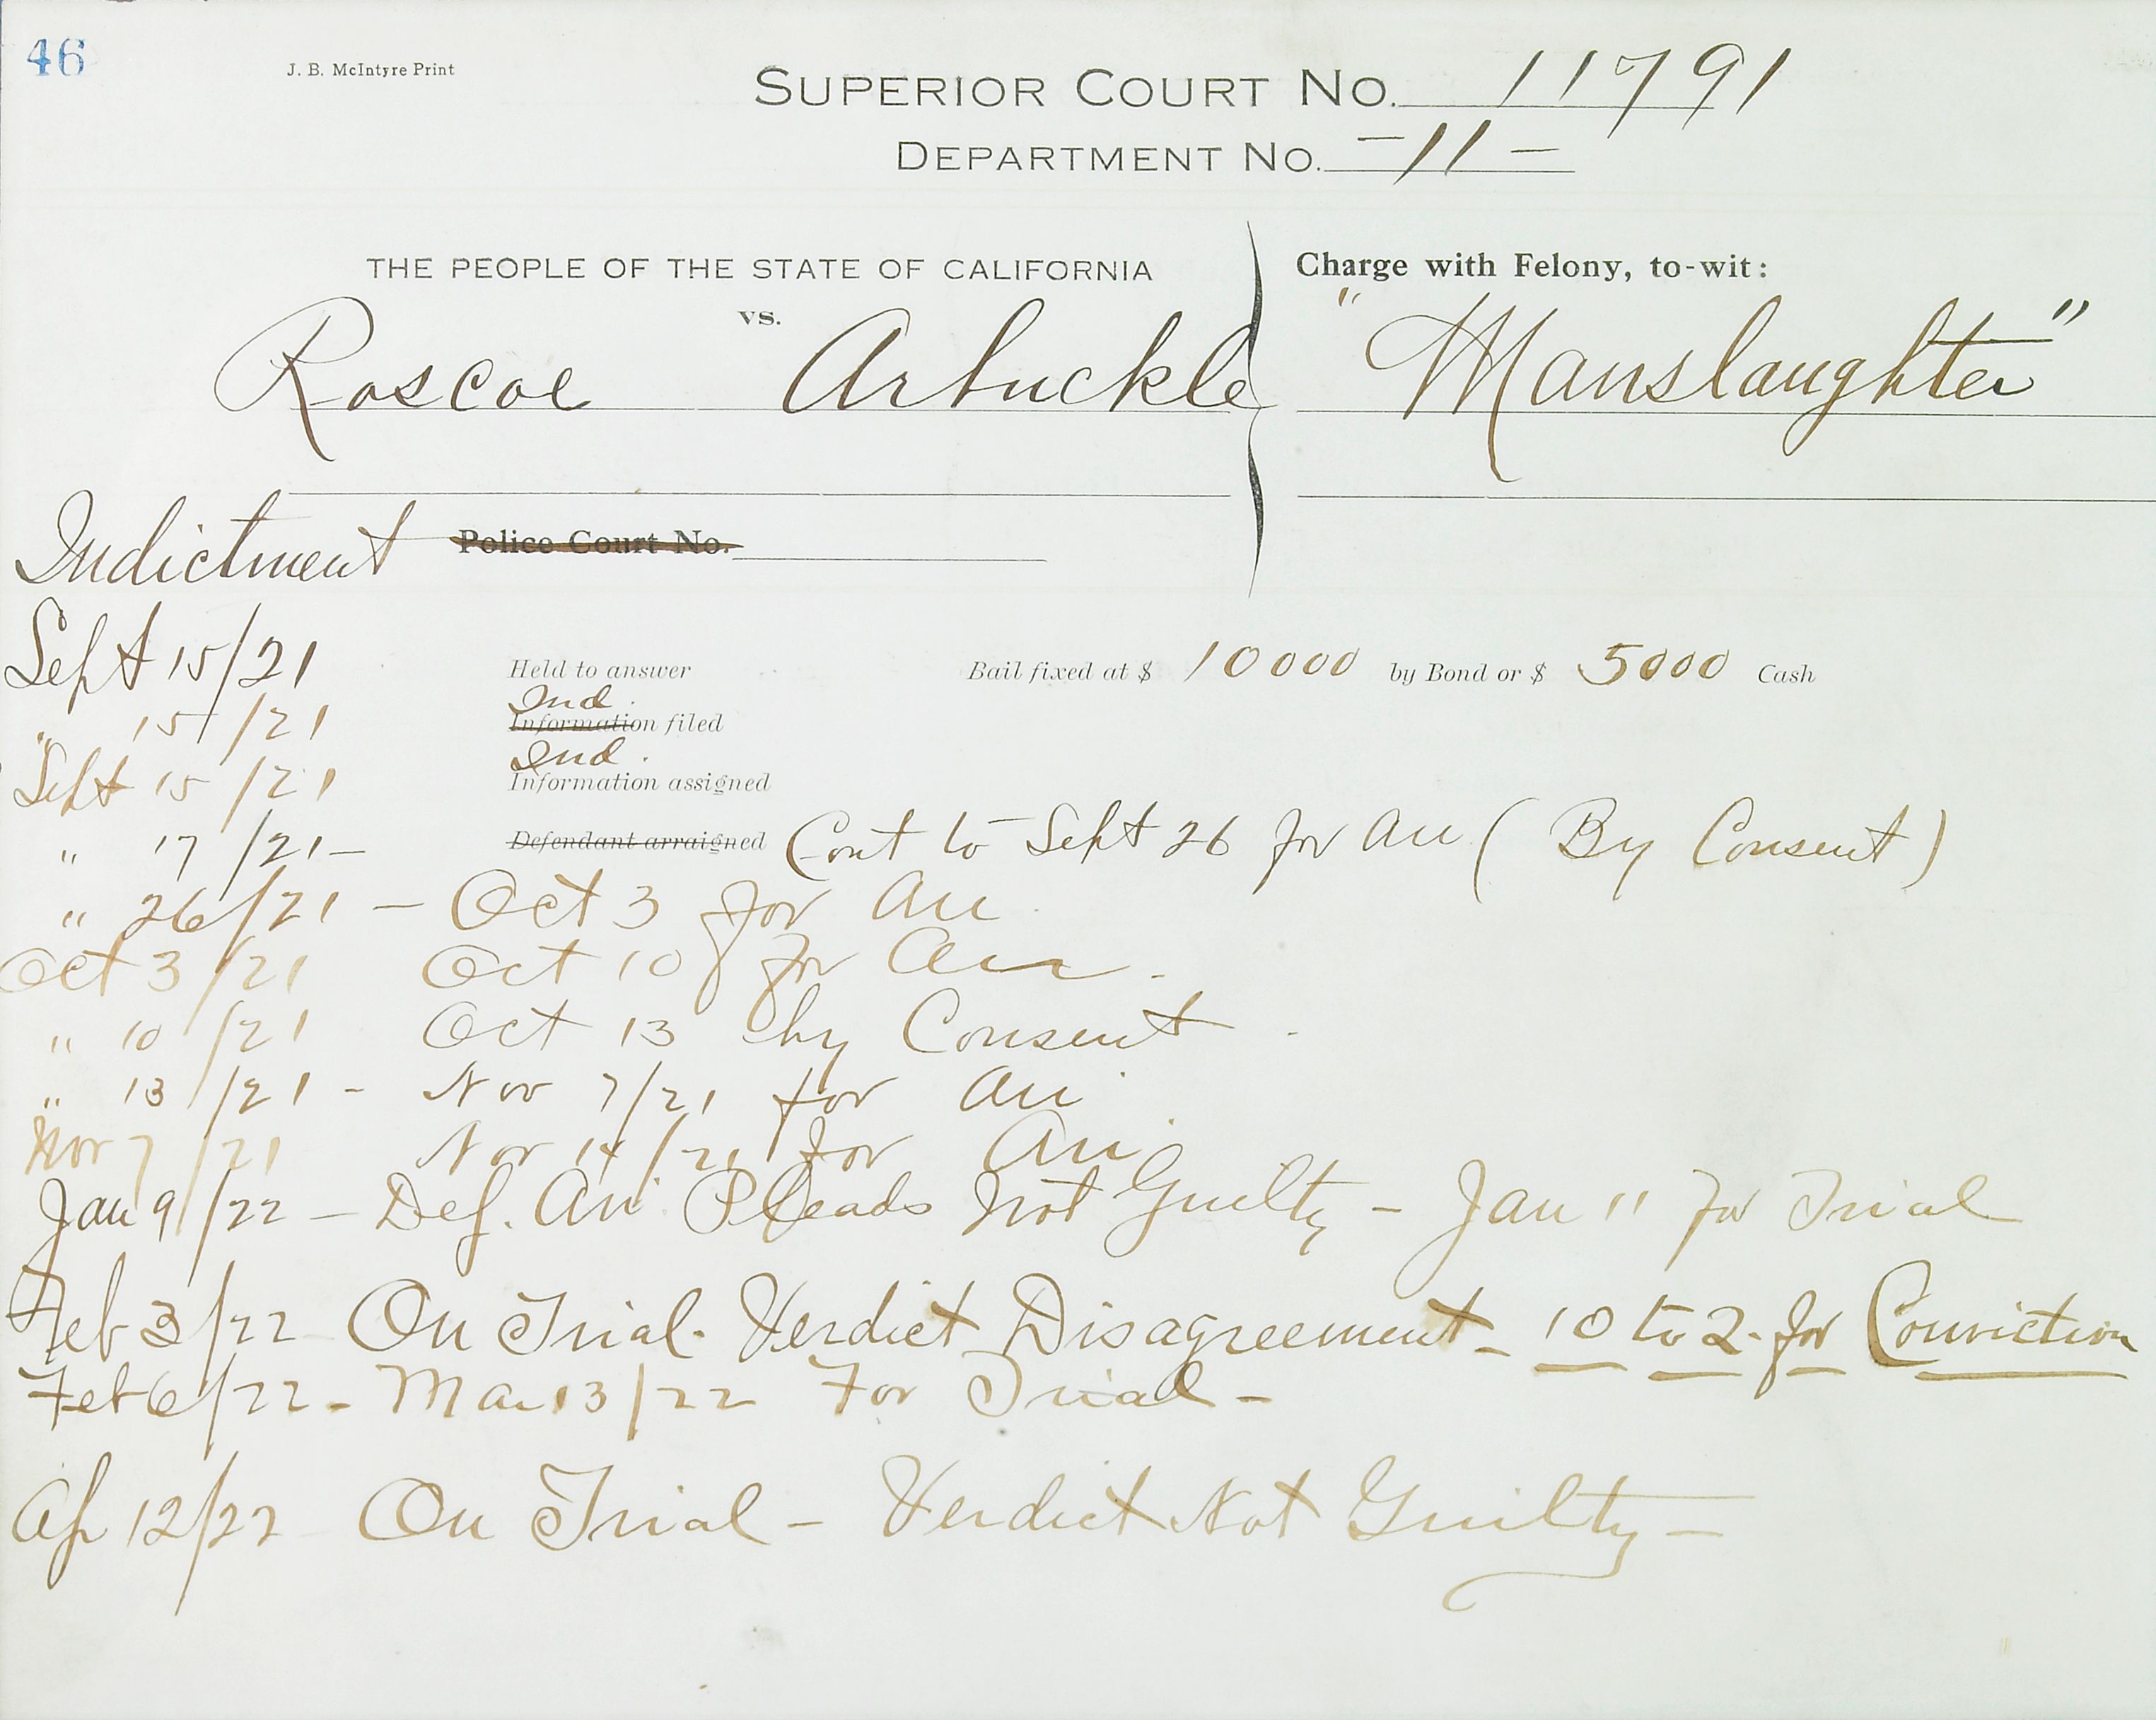 46
J. B. McIntyre Print
SUPERIOR COURT NO. 11791
DEPARTMENT NO. -11-
THE PEOPLE OF THE STATE OF CALIFORNIA
vs.
Roscoe Arbuckle
Charge with Felony, to-wit:
"Manslaughter"
Indictment Police Court No.
Sept 15/21 Held to answer Bail fixed at $ 10000 by Bond or $ 5000 Cash
Ind.
" 15/21 Information filed
Ind.
Sept 15/21 Information assigned
" 17/21- Defendant arraigned Cont to Sept 26 for Arr (By Consent)
" 26/21 - Oct 3 for Arr
Oct 3/21 Oct 10 for Arr.
" 10/21 Oct 13 by Consent.
" 13/21 - Nov 7/21 for Arr
Nov 7/21 Nov 14/21 for Arr
Jan 9/22 - Def. Arr. Pleads Not Guilty - Jan 11 for Trial
Feb 3/22 On Trial. Verdict Disagreement - 10 to 2. for Conviction
Feb 6/22 - Mar 13/22 For Trial -
Ap 12/22 On Trial - Verdict Not Guilty -